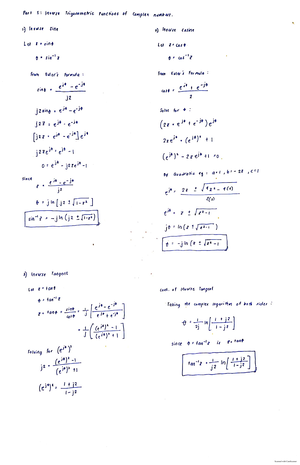 Part 2: Inverse Trigonometric Functions of Complex Numbers.
1) Inverse Sine
Let z = sinθ
θ = sin⁻¹z
From Euler's Formula:
sinθ = (e^jθ - e^-jθ) / j2
j2 sinθ = e^jθ - e^-jθ
j2z = e^jθ - e^-jθ
[j2z = e^jθ - e^-jθ] e^jθ
j2z e^jθ = e^jθ - 1
0 = e^jθ - j2z e^jθ - 1
since
z = (e^jθ - e^-jθ) / j2
θ = j ln [jz ± √(1-z²)]
sin⁻¹z = -j ln (jz ± √(1-z²))
2) Inverse Cosine
Let z = cosθ
θ = cos⁻¹z
From Euler's Formula:
cosθ = (e^jθ + e^-jθ) / 2
Solve for θ:
(2z = e^jθ + e^-jθ) e^jθ
2z e^jθ = (e^jθ)² + 1
(e^jθ)² - 2z e^jθ + 1 = 0
By Quadratic eq = a=1, b=-2z, c=1
e^jθ = (2z ± √(4z² - 4(1))) / 2(1)
e^jθ = z ± √(z²-1)
jθ = ln (z ± √(z²-1))
θ = -j ln (z ± √(z²-1))
3) Inverse Tangent
Let z = tanθ
θ = tan⁻¹z
z = tanθ = sinθ/cosθ = 1/j [(e^jθ - e^-jθ) / (e^jθ + e^-jθ)]
= 1/j [((e^jθ)² - 1) / ((e^jθ)² + 1)]
Solving for (e^jθ)²
jz = ((e^jθ)² - 1) / ((e^jθ)² + 1)
(e^jθ)² = (1 + jz) / (1 - jz)
cont. of Inverse Tangent
Taking the complex logarithm of both sides:
θ = 1/2j ln [(1 + jz) / (1 - jz)]
since θ = tan⁻¹z is z = tanθ
tan⁻¹z = 1/j2 ln [(1 + jz) / (1 - jz)]